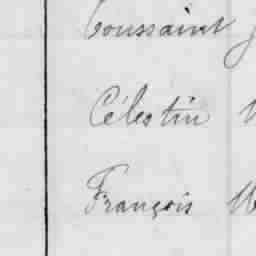 Toussaint
Célestin
François